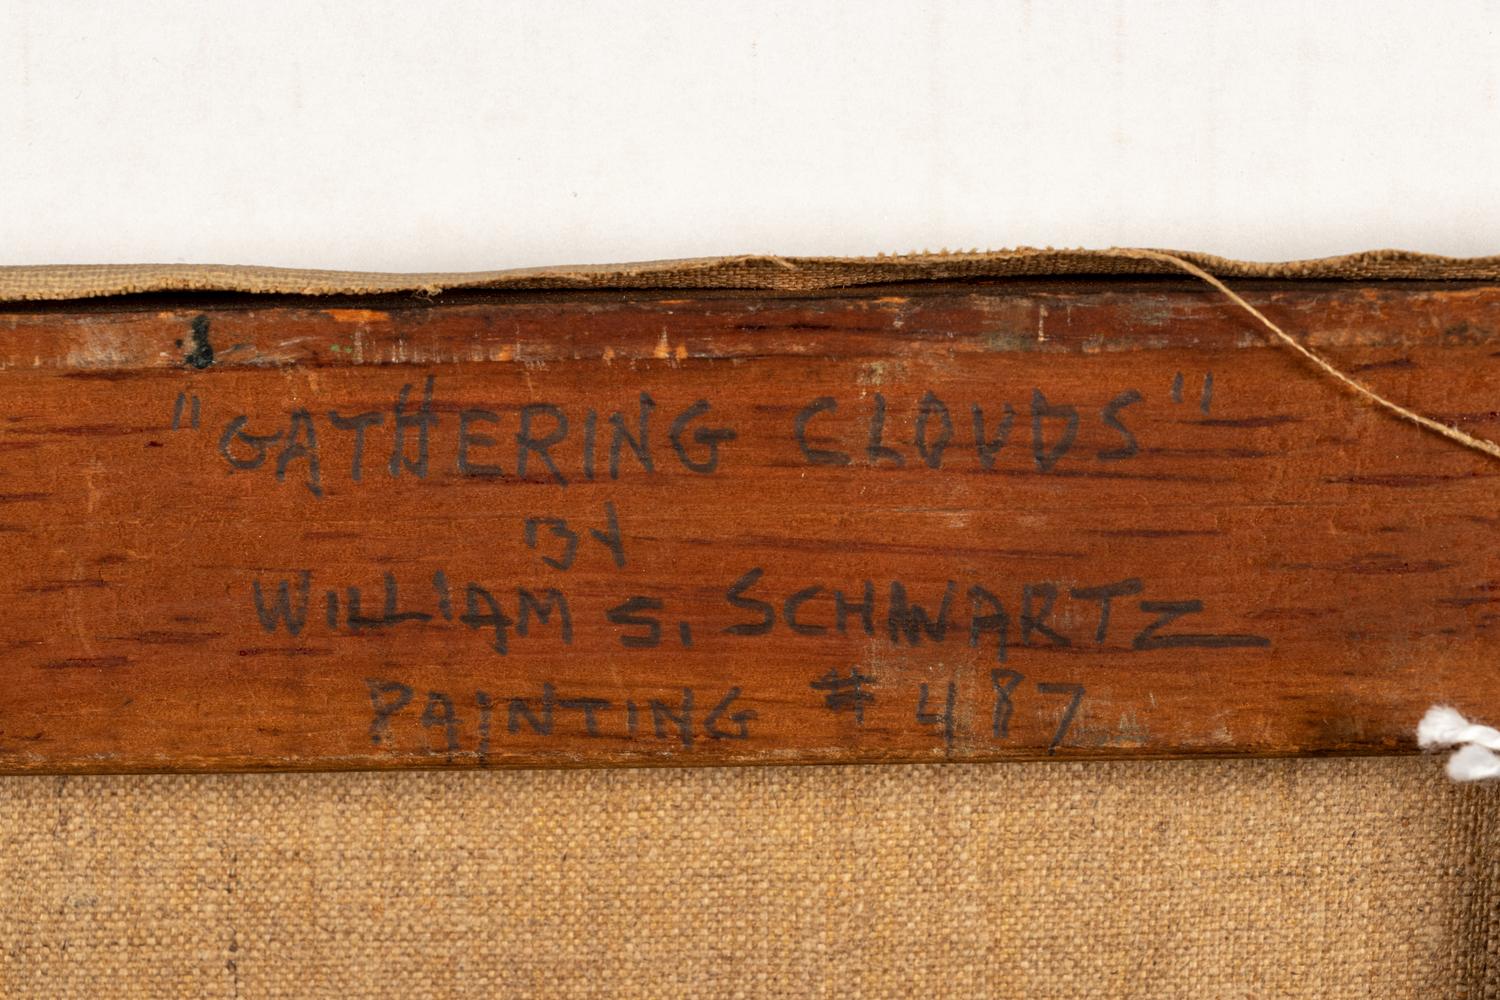 "GATHERING CLOUDS"
BY
WILLIAM S. SCHWARTZ
PAINTING # 487